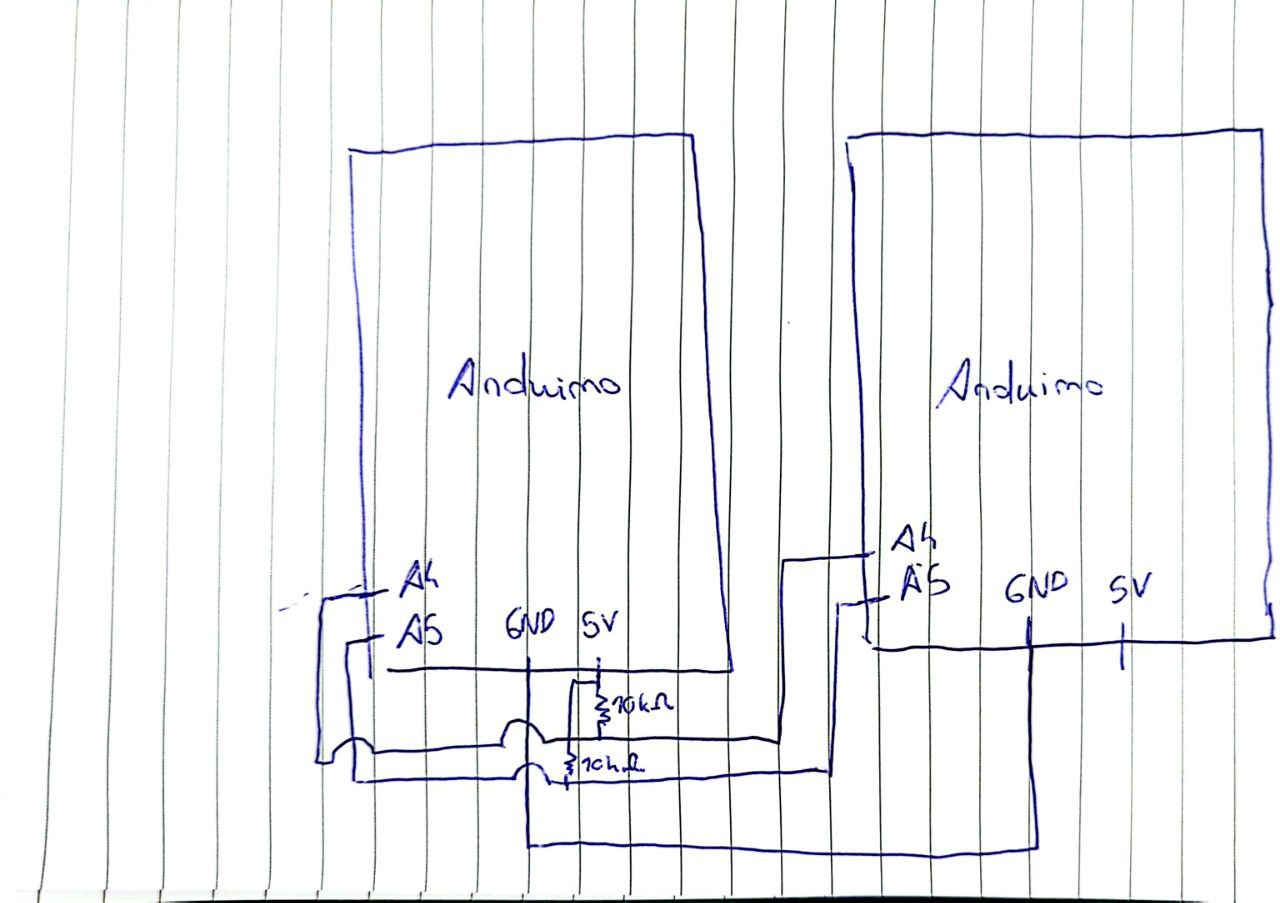 Arduino
A4
A5
GND 5V
10kΩ
10kΩ
Arduino
A4
A5
GND 5V